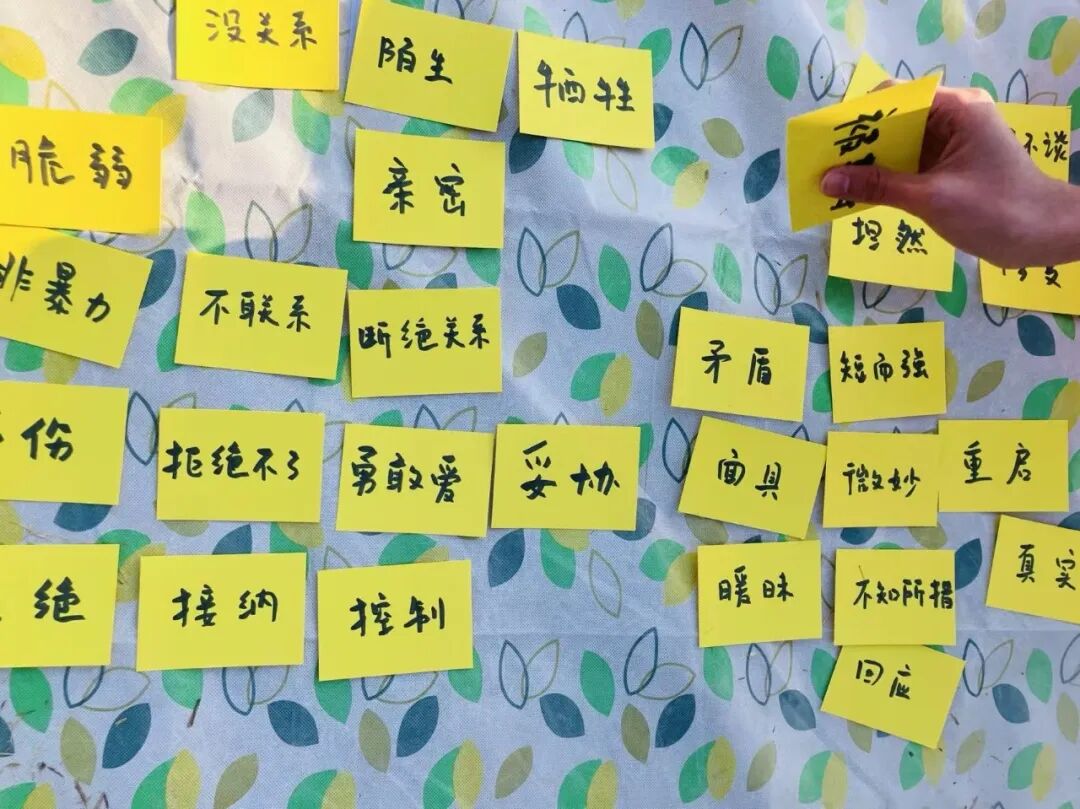 没关系
陌生
牺牲
脆弱
亲密
不谈
坦然
非暴力
不联系
断绝关系
矛盾
短而强
伤
拒绝不了
勇敢爱
妥协
面具
微妙
重启
绝
接纳
控制
暧昧
不知所措
真实
回应